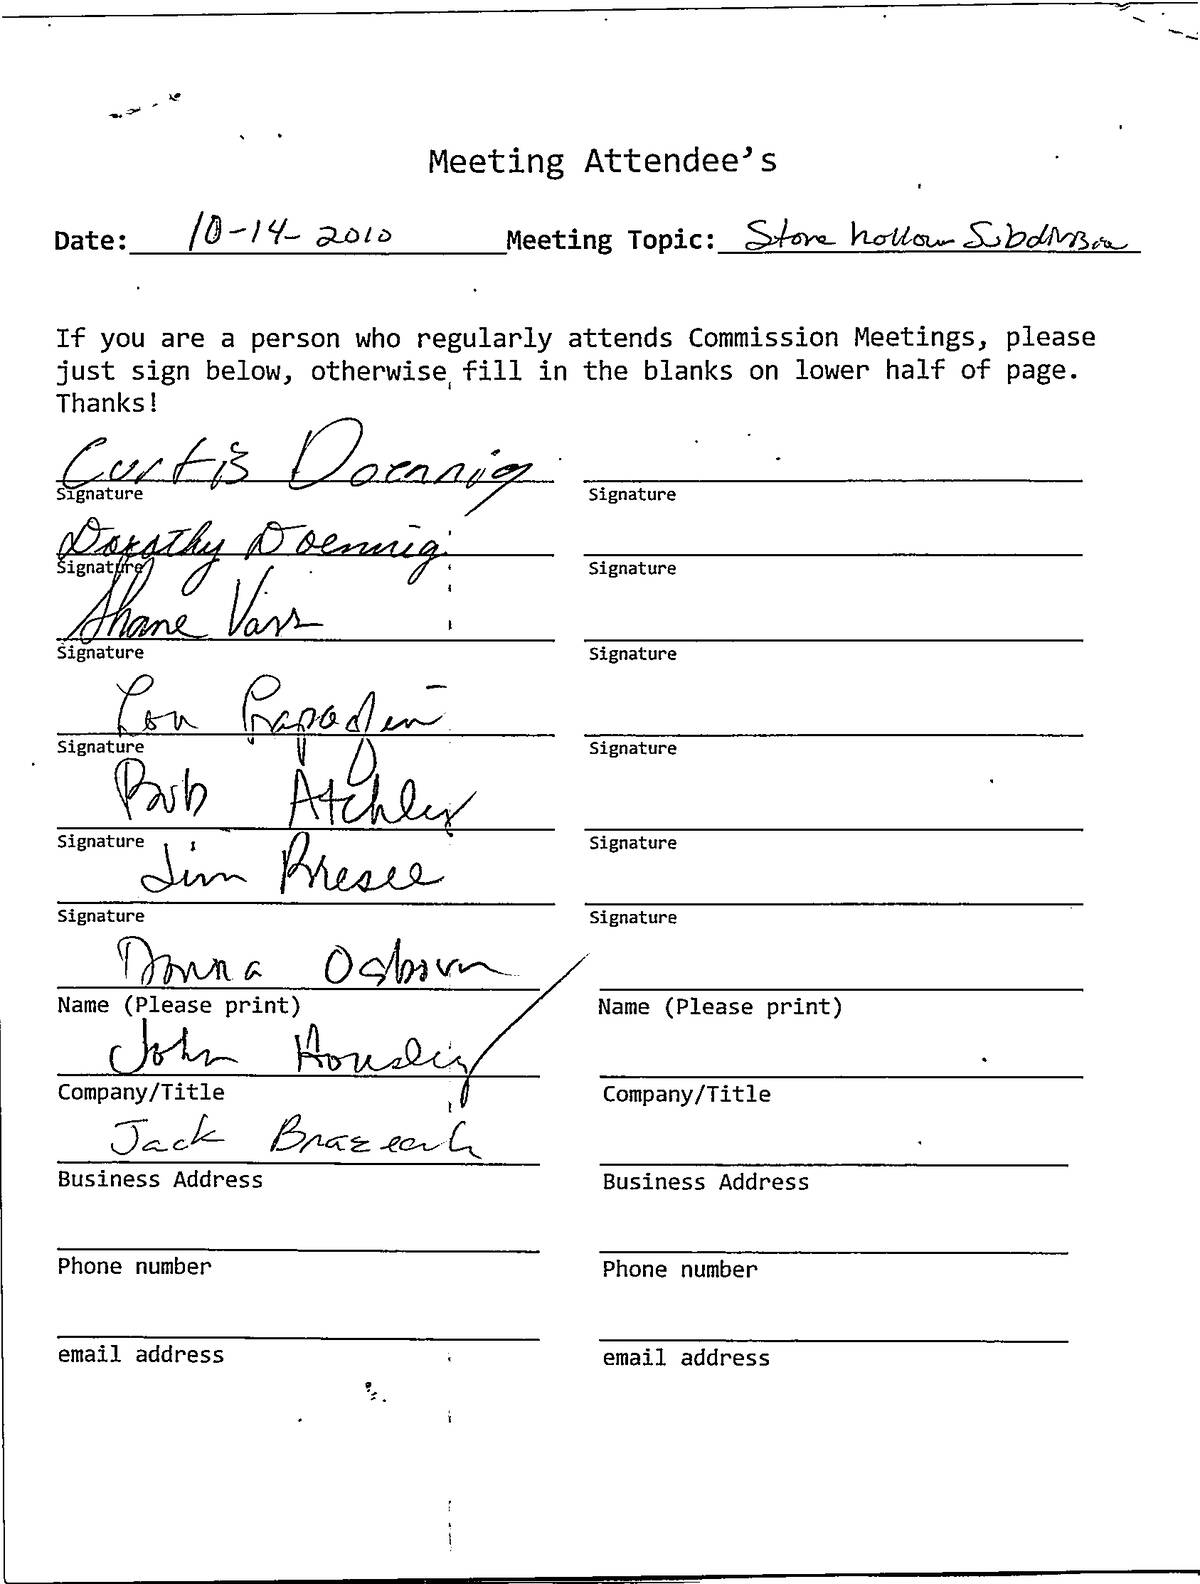 Meeting Attendee’s
Date: 10-14-2010 Meeting Topic: Stone hollow Subdivision
If you are a person who regularly attends Commission Meetings, please
just sign below, otherwise fill in the blanks on lower half of page.
Thanks!
Curtis Doennig
Signature Signature
Dorothy Doennig
Signature Signature
Shane Vass
Signature Signature
Lou
Signature Signature
Bob Atchley
Signature Signature
Jim Bresee
Signature Signature
Donna Osborn
Name (Please print) Name (Please print)
John Housley
Company/Title Company/Title
Jack
Business Address Business Address
Phone number Phone number
email address email address